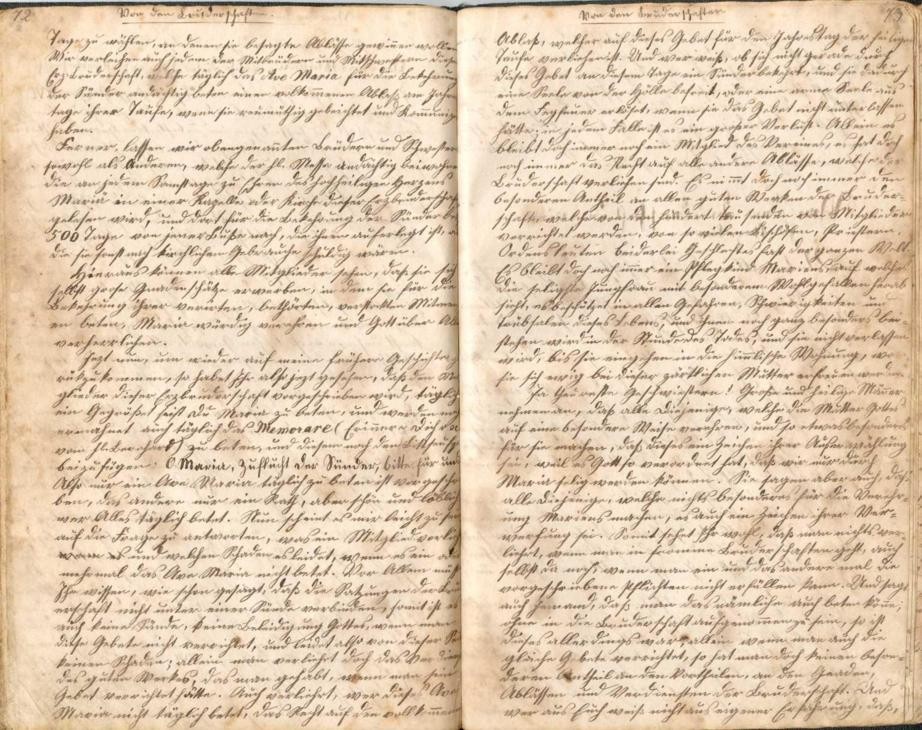 72 Von den Bruderschaften.
Tage zu wählen, an denen sie besagte Ablässe gewinnen wollen
Wir verleihen auch jedem der Mitbrüder und Mitschwestern dieser
Erzbruderschaft, welche täglich das Ave Maria für die Bekehrung
der Sünder andächtig beten einen vollkommenen Ablaß am Jahres
tage ihrer Taufe, wenn sie reumüthig gebeichtet und kommunizirt
haben.
Ferner, lassen wir obengenannten Brüdern und Schwestern
sowohl als Anderen, welche der hl. Messe andächtig beiwohnen
die an jedem Samstage zu Ehren des hochheiligen Herzens
Mariä in einer Kapelle oder Kirche dieser Erzbruderschaft
gelesen wird, und dort für die Bekehrung der Sünder be
500 Tage von jener Buße nach, die ihnen auferlegt ist, o
die sie sonst nach kirchlichem Gebrauche schuldig wären.
Hieraus können alle Mitglieder sehen, daß sie sich
selbst große Gnadenschätze erwerben, in dem sie für die
Bekehrung ihrer verirrten, bethörten, verstockten Mitmen
en beten, Maria würdig verehren und Gott über Al
verherrlichen.
Jetzt nun, um wieder auf meine frühere Geschichte
rück zu kommen, so habet Ihr also jetzt gesehen, daß den Mit
glieder dieser Erzbruderschaft vorgeschrieben wird, täglich
ein Gegrüßet seist Du Maria zu beten, und werden noch
ermahnet auch täglich das Memorare (Erinnere Dich o
vom hl. Bernhard) zu beten, und diesem noch den Bittseufz
beizufügen: O Maria, Zuflucht der Sünder, bitte für un
Also nur ein Ave Maria täglich zu beten ist vorgeschrie
ben, das andere nur ein Rath, aber schön und löblich
wer Alles täglich betet. Nun scheint es mir leicht zu sein
auf die Frage zu antworten, was ein Mitglied verliert
wenn es und welchen Schaden es leidet, wenn es ein od
mehrmal das Ave Maria nicht betet. Vor Allem müßt
Ihr wissen, wie schon gesagt, daß die Satzungen der Brud
erschaft nicht unter einer Sünde verbinden, somit ist es
auch keine Sünde, keine Beleidigung Gottes wenn man
diese Gebete nicht verrichtet, und leidet also von dieser S
keinen Schaden; allein man verliert doch das Verdienst
des guten Werkes, das man gehabt, wenn man sein
Gebet verrichtet hätte. Auch verliert, wer dieses Ave
Maria nicht täglich betet, das Recht auf den vollkommen
Von den Bruderschaften 73
Ablaß, welcher auf dieses Gebet für den Jahrestag der heiligen
Taufe verliehen ist. Und wer weiß, ob sich nicht gerade durch
dieses Gebet an diesem Tage ein Sünder bekehrt, und sie dadurch
eine Seele von der Hölle befreit, oder eine arme Seele aus
dem Fegfeuer erlöset, wenn sie das Gebet nicht unterlassen
hätte; in jedem Falle ist es ein großer Verlust. Allein es
bleibt doch immer noch ein Mitglied des Vereines, es hat doch
noch immer das Recht auf alle andere Ablässe, welche der
Bruderschaft verliehen sind. Es nimmt doch noch immer den
besonderen Antheil an allen guten Werken der Bruder-
schaft, welche von den hundert tausenden von Mitgliedern
verrichtet werden, von so vielen Bischöfen, Priestern,
Ordensleuten beiderlei Geschlechtes fast der ganzen Welt.
Es bleibt doch noch immer ein Pflegkind Mariens, auf welches
die seligste Jungfrau mit besonderem Wohlgefallen herab
sieht, es beschützt in allen Gefahren, Schwierigkeiten und
Trübsalen dieses Lebens, und ihnen noch ganz besonders bei-
stehen wird in der Stunde des Todes, und sie nicht verlassen
wird, bis sie eingehen in die himmlische Wohnung, wo
sie sich ewig bei dieser zärtlichen Mutter erfreuen werden.
Ja theuerste Geschwistern! Große und heilige Männer
nehmen an, daß alle Diejenigen, welche die Mutter Gottes
auf eine besondere Weise verehren, und so etwas besonders
für sie machen, daß dieses ein Zeichen ihrer Auserwählung
sei, weil es Gott so verordnet hat, daß wir nur durch
Maria selig werden können. Sie sagen aber auch, daß
alle Diejenige, welche nichts besonders für die Verehr-
ung Mariens machen, es auch ein Zeichen ihrer Ver-
werfung sei. Somit sehet Ihr wohl, daß man nichts ver-
liert, wenn man in fromme Bruderschaften geht, auch
selbst da noch wenn man ein und das andere mal die
vorgeschriebene Pflichten nicht erfüllen kann. Und sagt
auch Jemand, daß man das nämliche auch beten könne,
ohne in die Bruderschaft aufgenommen zu sein, so ist
dieses allerdings wahr, allein wenn man auch die
gleiche Gebete verrichtet, so hat man doch keinen beson-
deren Antheil an den Vortheilen, an den Gnaden,
Ablässen und Verdiensten der Bruderschaft. Und
wer aus Euch weiß nicht aus eigener Erfahrung, daß,